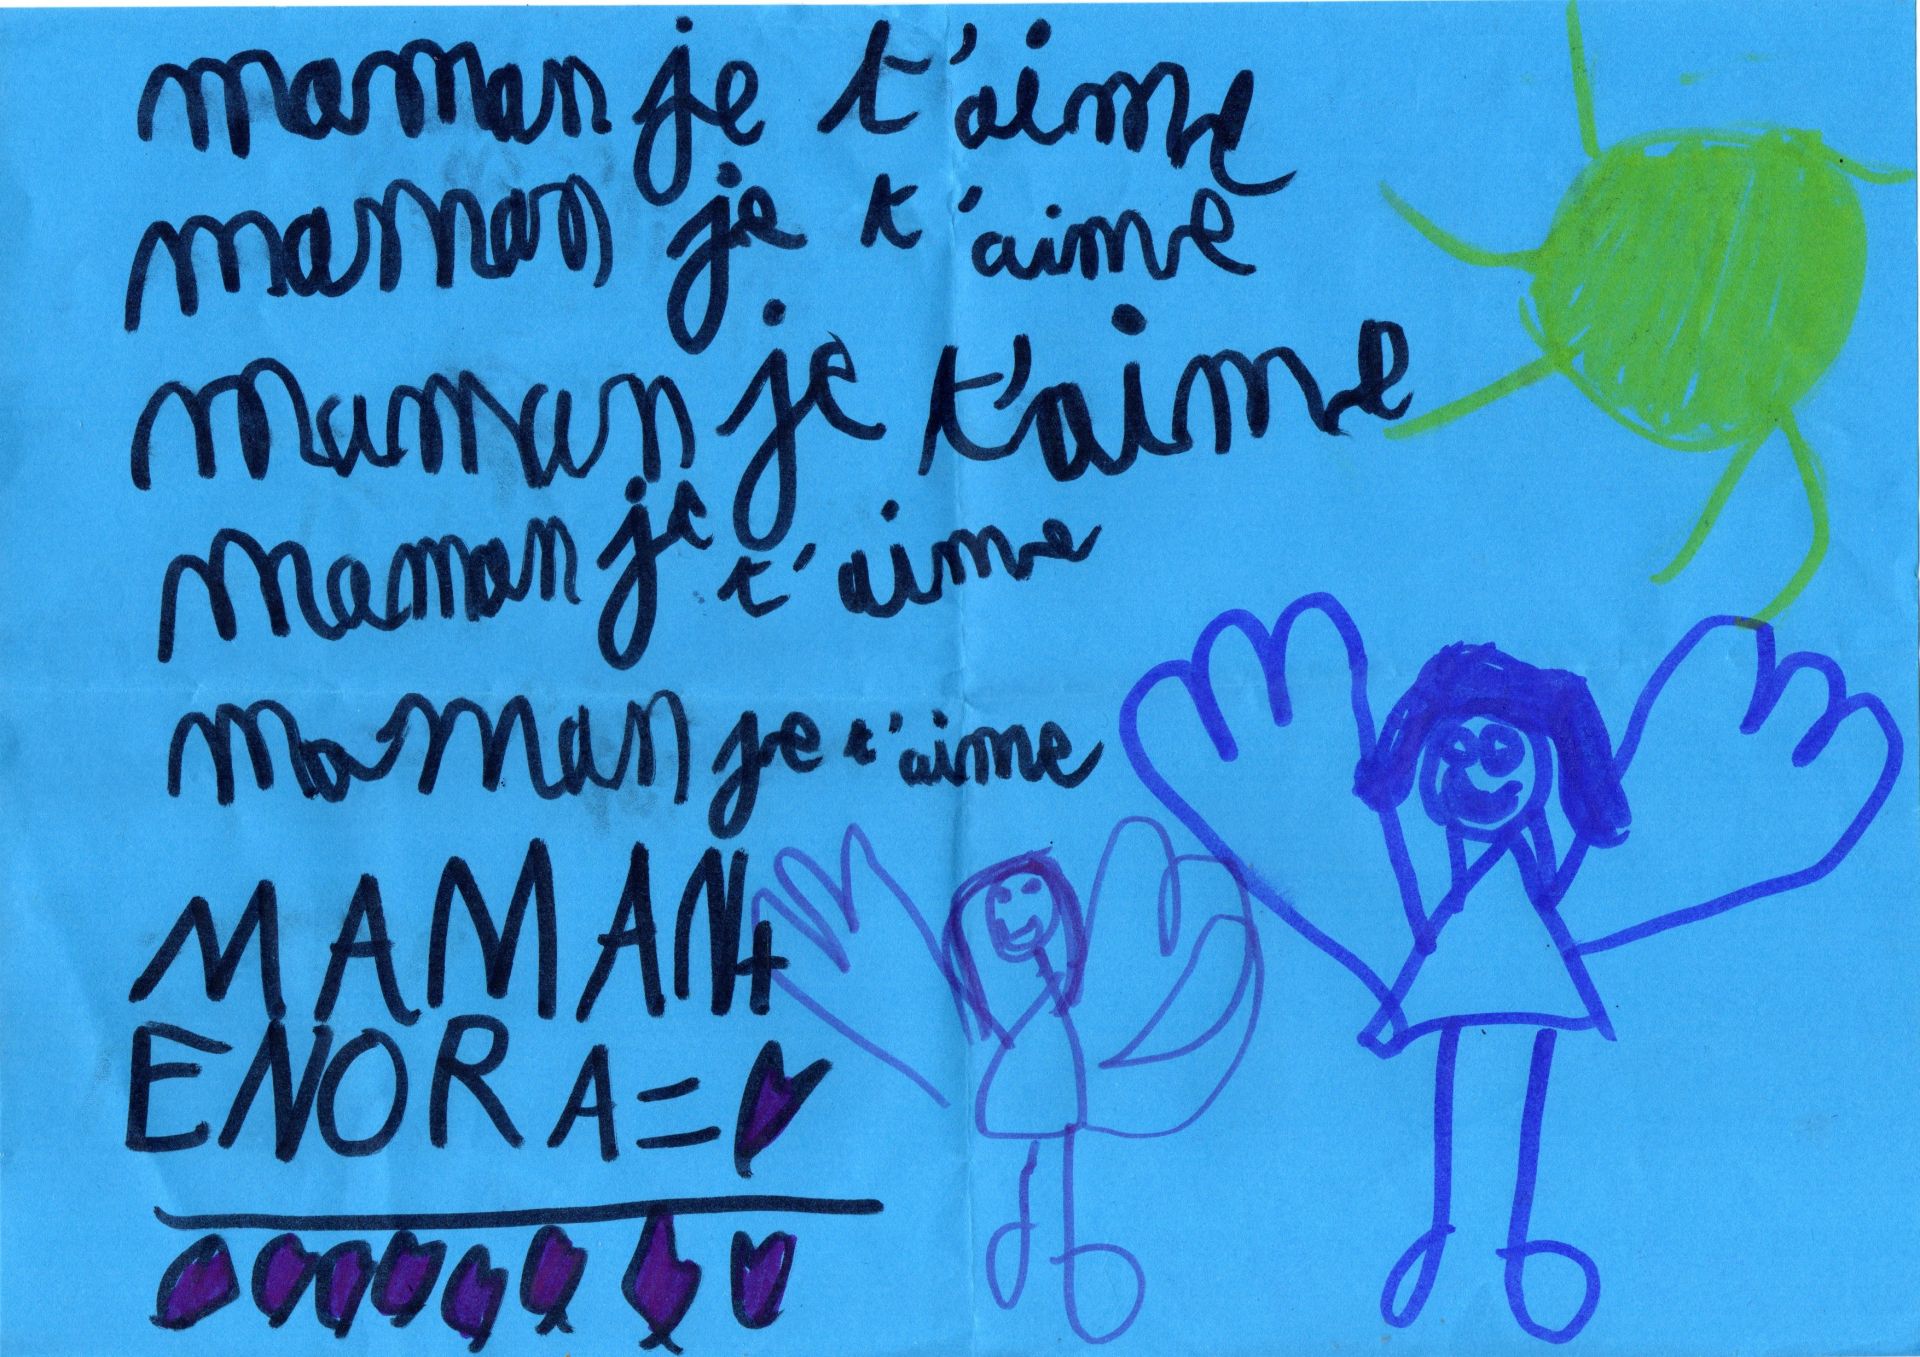 maman je t'aime
maman je t'aime
maman je t'aime
maman je t'aime
maman je t'aime
MAMAN+
ENORA=